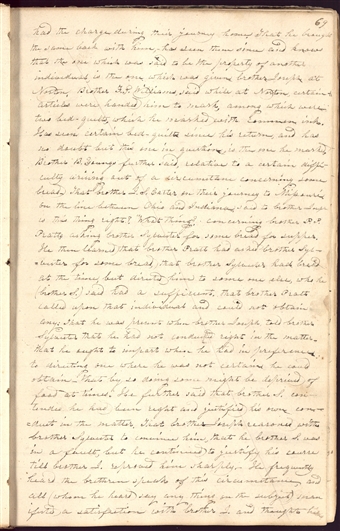 69
had the charge during their journey home, & that he brought
the same back with him, has seen them since and knows
that the one which was said to be the property of another
individual is the one which was given brother Joseph at
Norton, Brother F. G. Williams said while at Norton certain
articles were handed him to mark, among which were
two bed-quilts, which he marked with common ink.
Has seen certain bed-quilts since his return, and has
no doubt but this one in question is the one he marked.
Brother B. Young further said, relative to a certain diffi-
culty arising out of a circumstance concerning some
bread, That brother J. S. Carter on their journey to Missouri
on the line between Ohio and Indiana, said to brother Joseph
is this thing right? What thing? concerning brother P. P.
Pratt's asking brother Sylvester for some bread for supper.
He then learned that brother Pratt had asked brother Syl-
vester for some bread, that brother Sylvester had bread
at the time, but directed him to some one else, who he
(brother S.) said had a sufficient, that brother Pratt
called upon that individual and could not obtain
any; that he was present when brother Joseph told brother
Sylvester that he had not conducted right in the matter.
that he ought to impart when he had in preference
to directing one where he was not certain he could
obtain. That by so doing some might be deprived of
food at times. He further said that brother S. con-
tended he had been right and justified his own con-
duct in the matter, That brother Joseph reasoned with
brother Sylvester to convince him, that he brother S. was
in a fault, but he continued to justify his course
till brother J. reproved him sharply. He frequently
heard the brethren speak of this circumstance, and
all (whom he heard) say any thing on the subject mani-
fested a satisfaction with brother J. and thought his